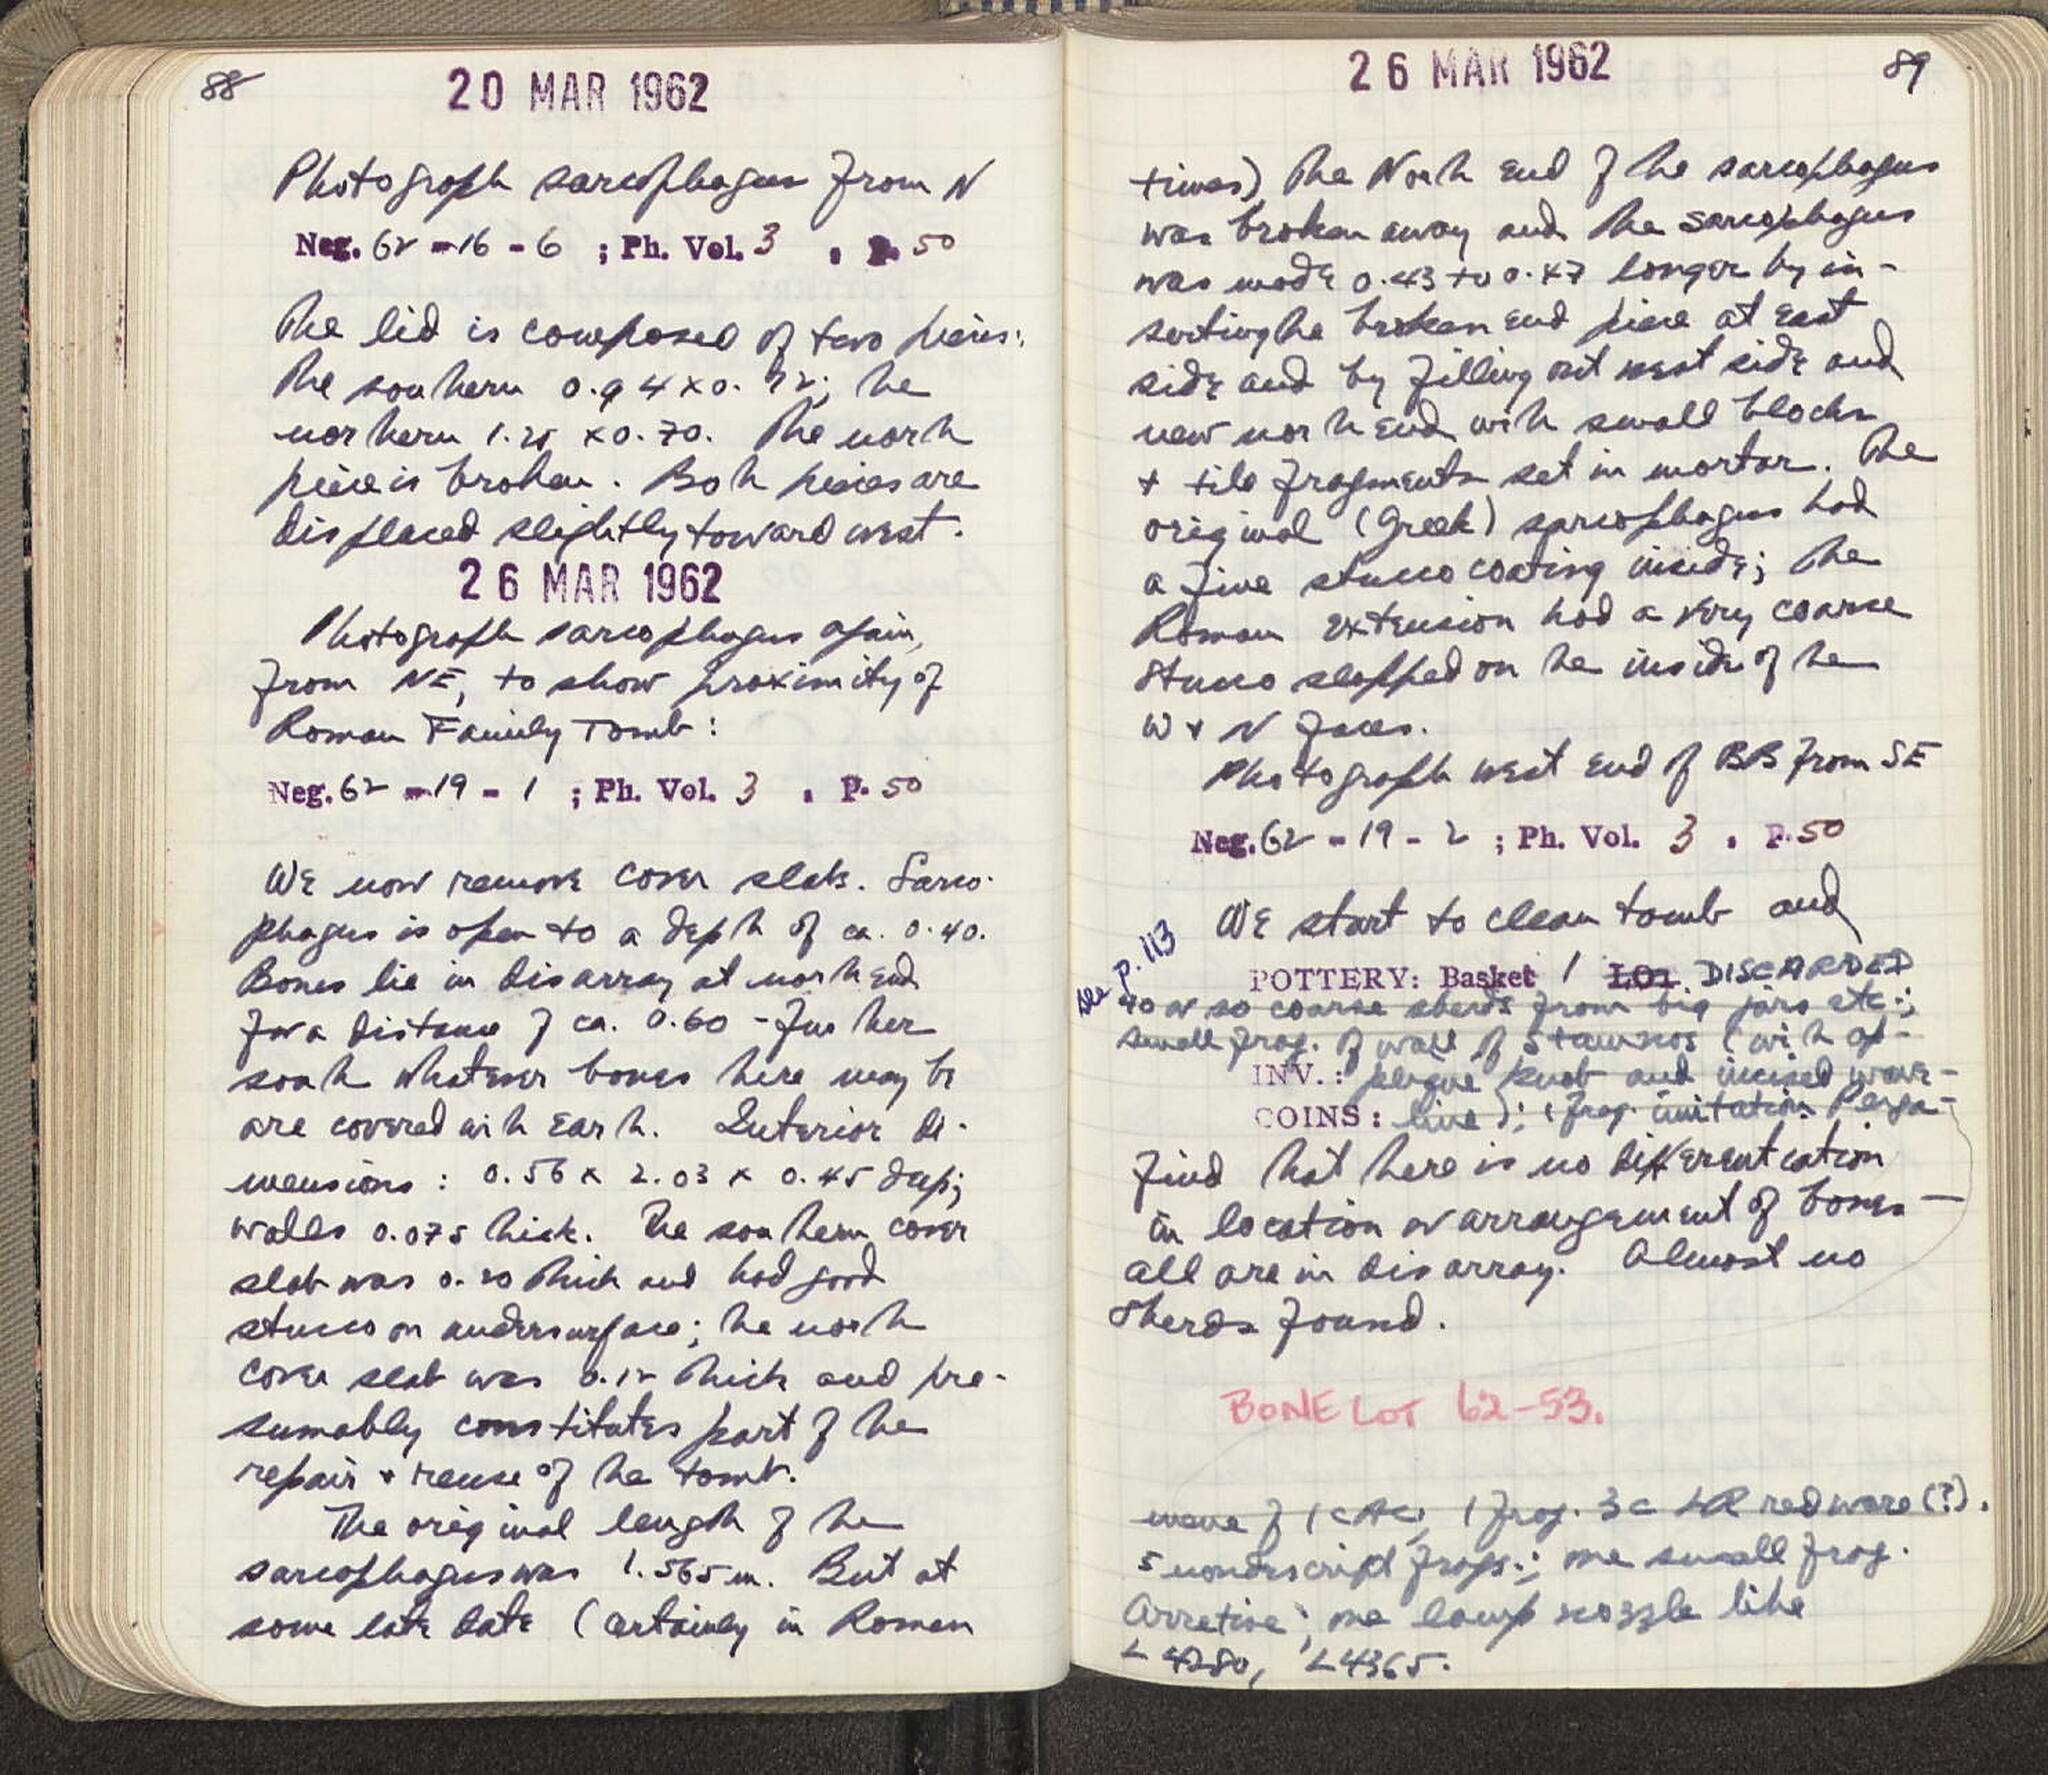 88
20 MAR 1962
Photograph sarcophagus from N
Neg. 62-16-6 ; Ph. Vol. 3 , p. 50
The lid is composed of two pieces:
The southern 0.94 x 0.72; the
northern 1.25 x 0.70. The north
piece is broken. Both pieces are
displaced slightly toward west.
26 MAR 1962
Photograph sarcophagus again,
from NE, to show proximity of
Roman Family Tomb:
Neg. 62-19-1 ; Ph. Vol. 3 , P. 50
We now remove cover slabs. Sarco-
phagus is open to a depth of ca. 0.40.
Bones lie in disarray at north end
for a distance of ca. 0.60 - further
south whatever bones there may be
are covered with earth. Interior di-
mensions: 0.56 x 2.03 x 0.45 deep;
walls 0.075 thick. The southern cover
slab was 0.20 thick and had good
stucco on undersurface; the north
cover slab was 0.12 thick and pre-
sumably constitutes part of the
repair + reuse of the tomb.
The original length of the
sarcophagus was 1.565 m. But at
some late date (certainly in Roman
26 MAR 1962
89
times) the North end of the sarcophagus
was broken away and the sarcophagus
was made 0.43 to 0.47 longer by in-
serting the broken end piece at east
side and by filling out west side and
new north end with small blocks
+ tile fragments set in mortar. The
original (Greek) sarcophagus had
a fine stucco coating inside; the
Roman extension had a very coarse
stucco slopped on the inside of the
W + N faces.
Photograph west end of BB from SE
Neg. 62-19-2 ; Ph. Vol. 3 , P. 50
We start to clean tomb and
see p. 113
POTTERY: Basket 1 Lot DISCARDED
40 or so coarse sherds from big jars etc.;
small frag. of wall of stamnos (with ap-
INV.: plique knob and incised wave-
COINS: line); 1 frag. imitation Perga-
find that there is no differentiation
in location or arrangement of bones —
all are in disarray. Almost no
sherds found.
BONE LOT 62-53.
mene of 1 c AC; 1 frag. 3c LR red ware (?).
5 nondescript frags.; one small frag.
Arretine; one lamp nozzle like
L 4280, L 4365.